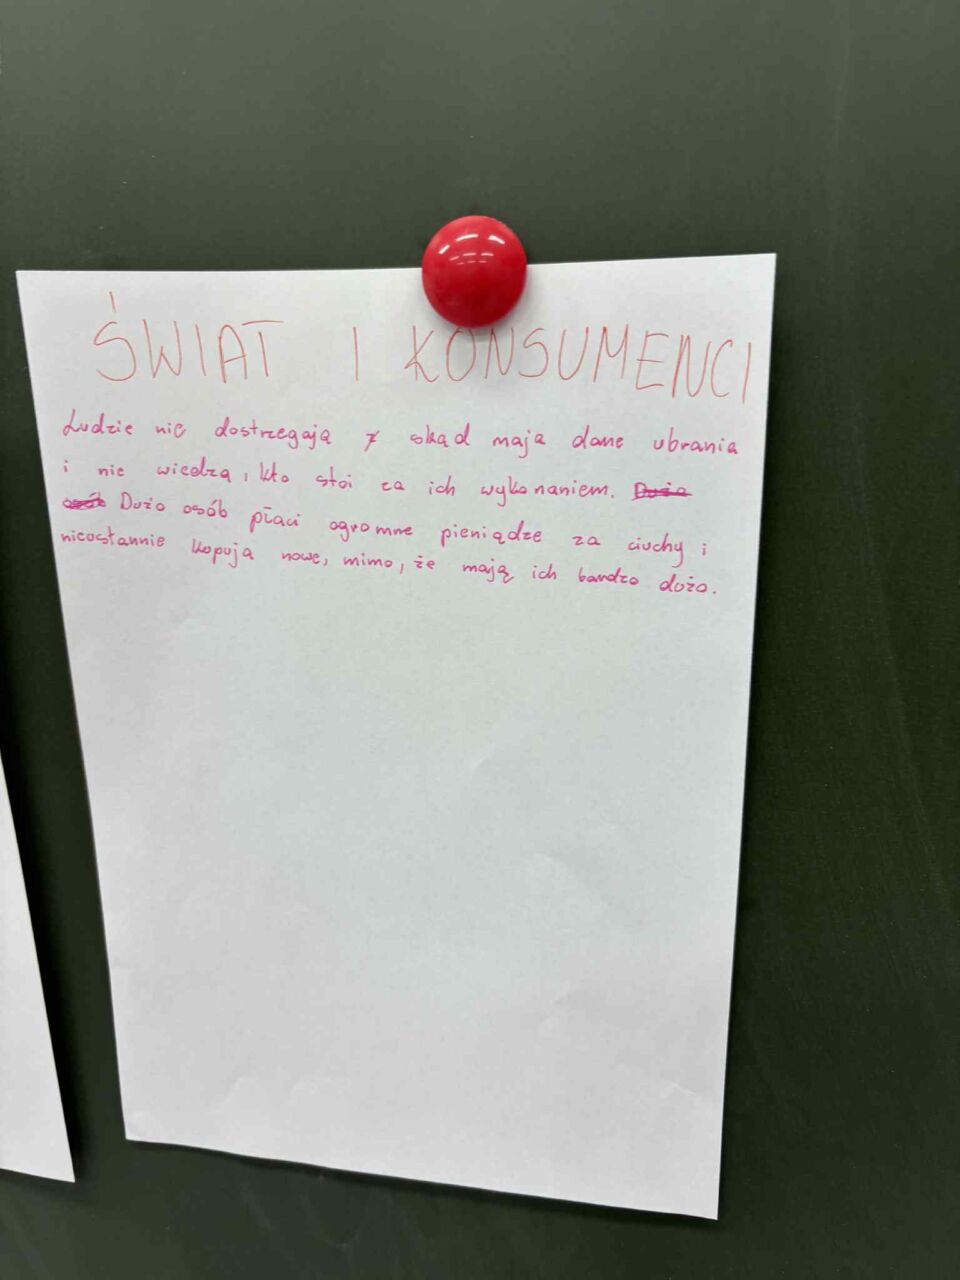 ŚWIAT I KONSUMENCI
Ludzie nie dostrzegają skąd maja dane ubrania
i nie wiedzą, kto stoi za ich wykonaniem. Dużo
osób Dużo osób płaci ogromne pieniądze za ciuchy i
nieustannie kupują nowe, mimo, że mają ich bardzo dużo.